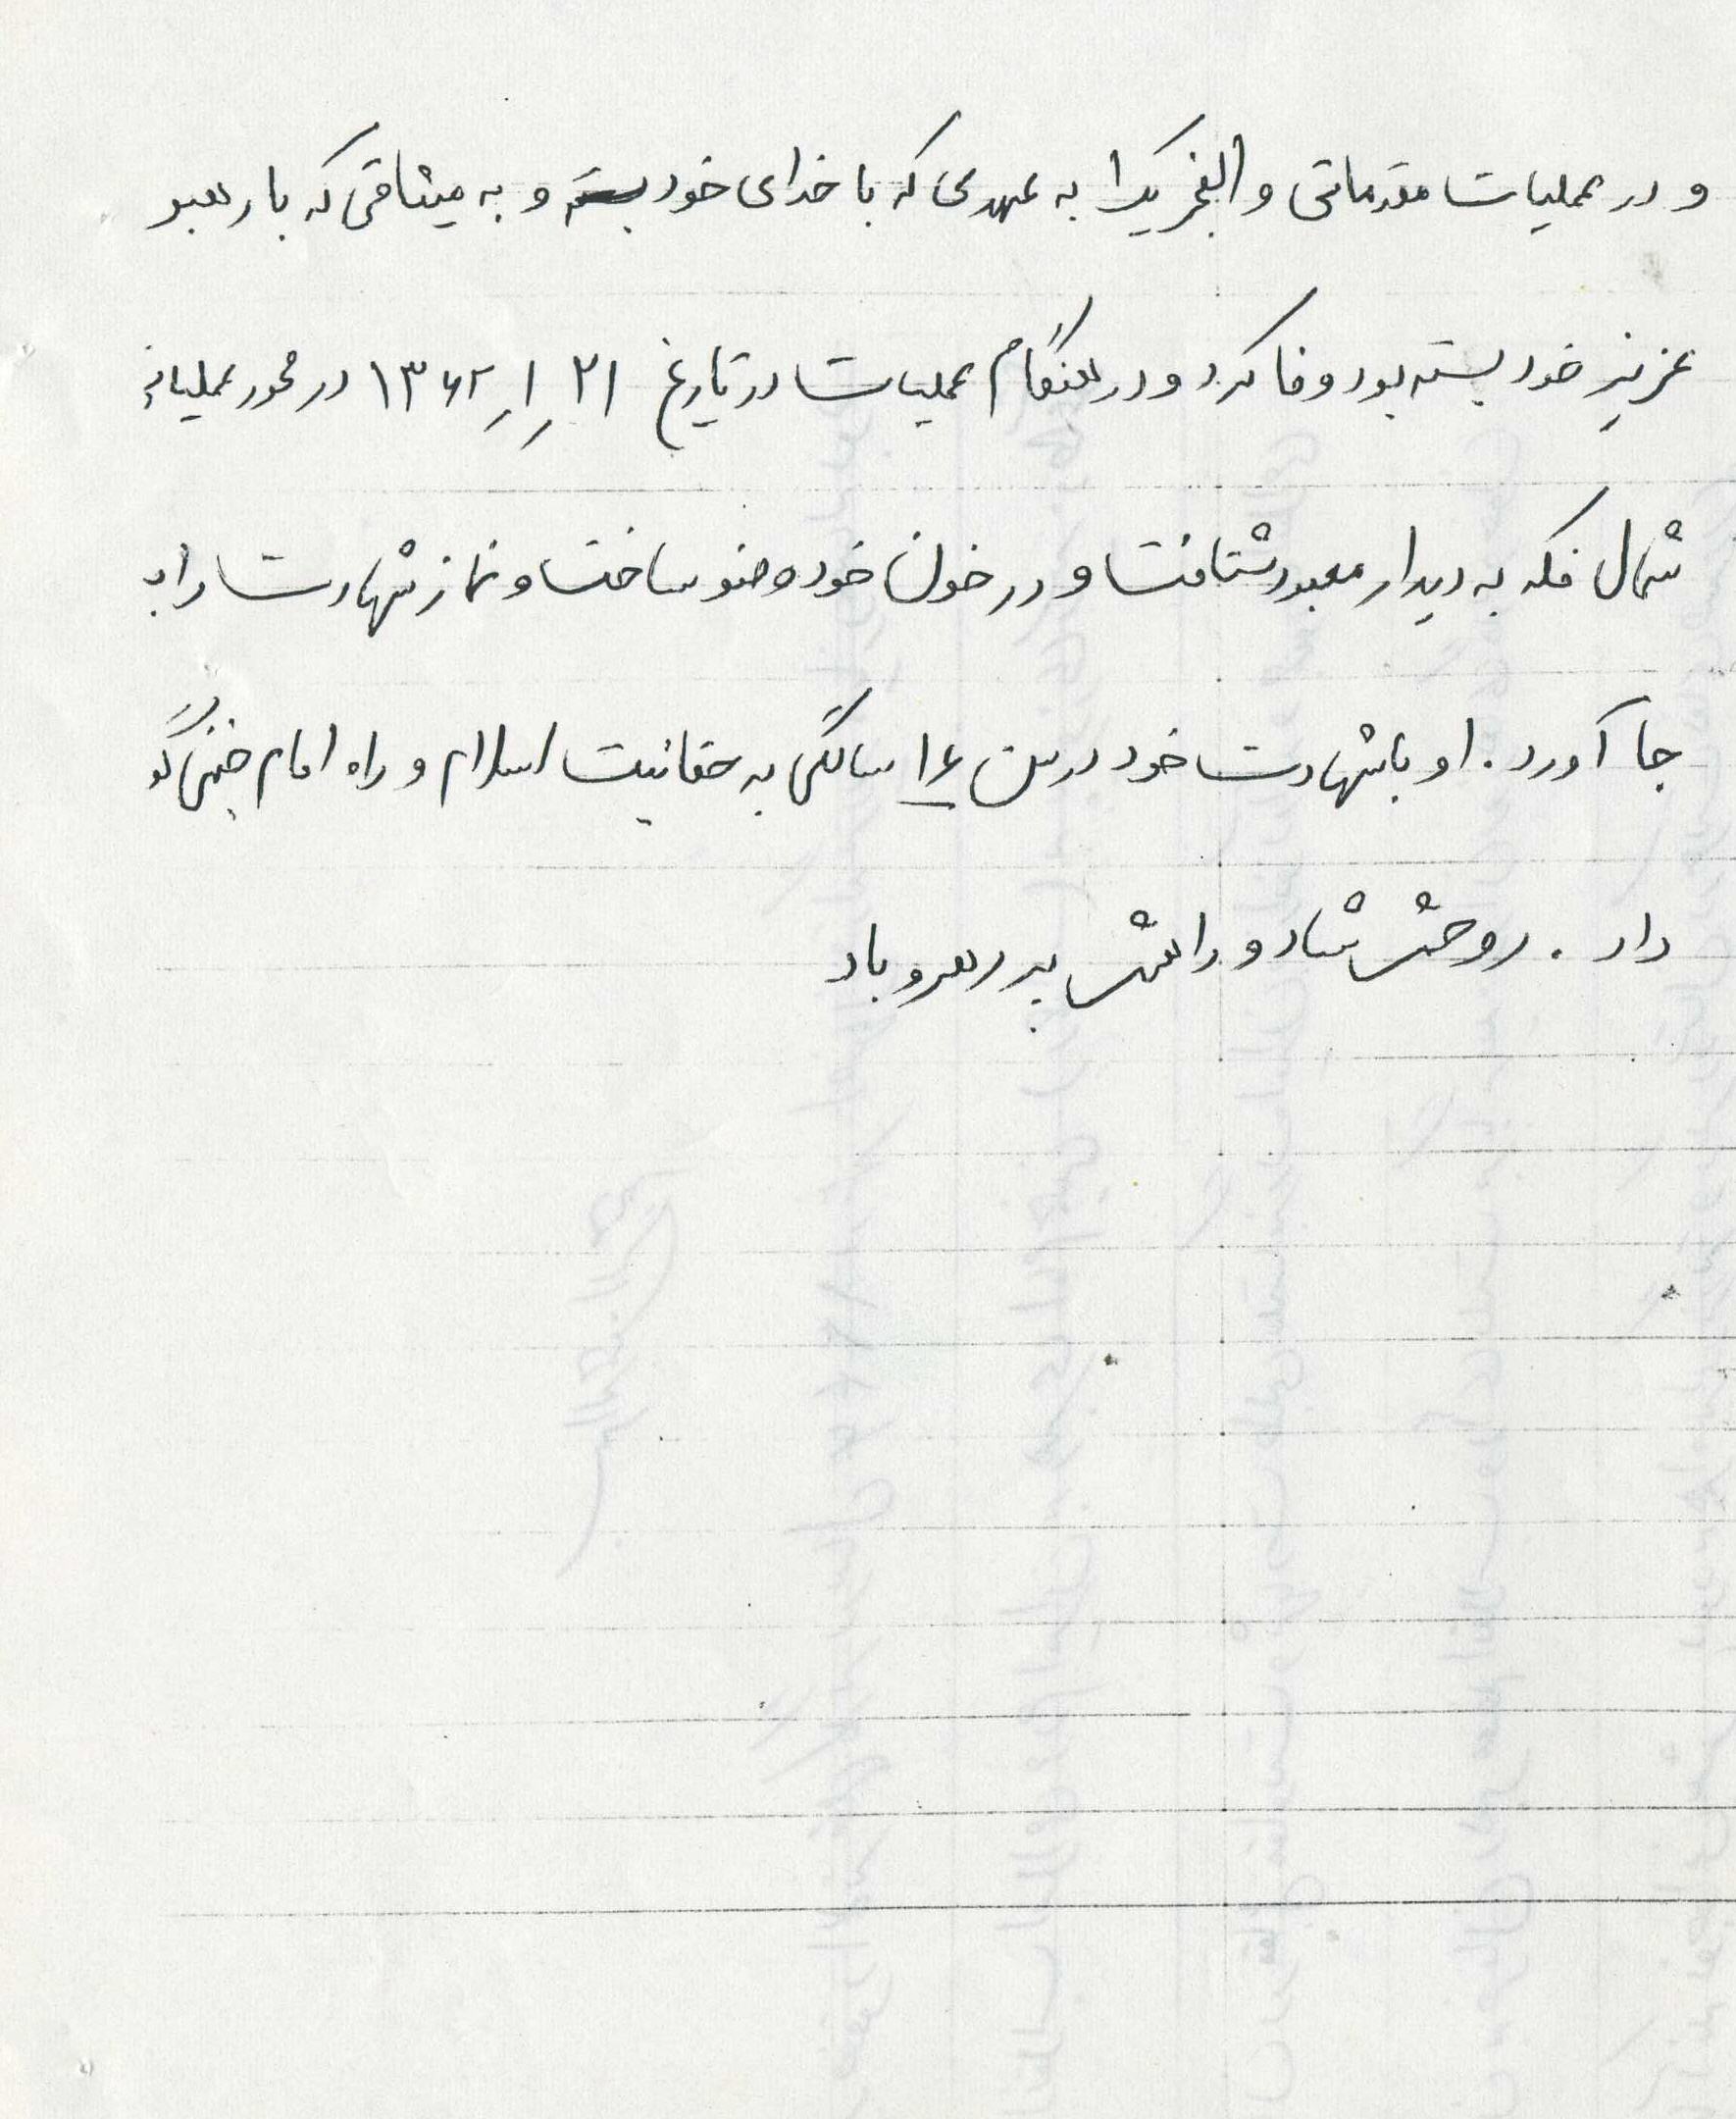 و در عملیات مقدماتی والفجر یک را به عهدی که با خدای خود بسته و به میثاقی که با رهبر
عزیز خود بسته بود وفا کرد و در هنگام عملیات در تاریخ ۲۱ ر ۱ ر ۱۳۶۲ در محور عملیاتی
شمال فکه به دیدار معبود شتافت و در خون خود وضو ساخت و نماز شهادت را به
جا آورد . او با شهادت خود در سن ۱۶ سالگی به حقانیت اسلام و راه امام خمینی گو
داد . روحش شاد و راهش پر رهرو باد